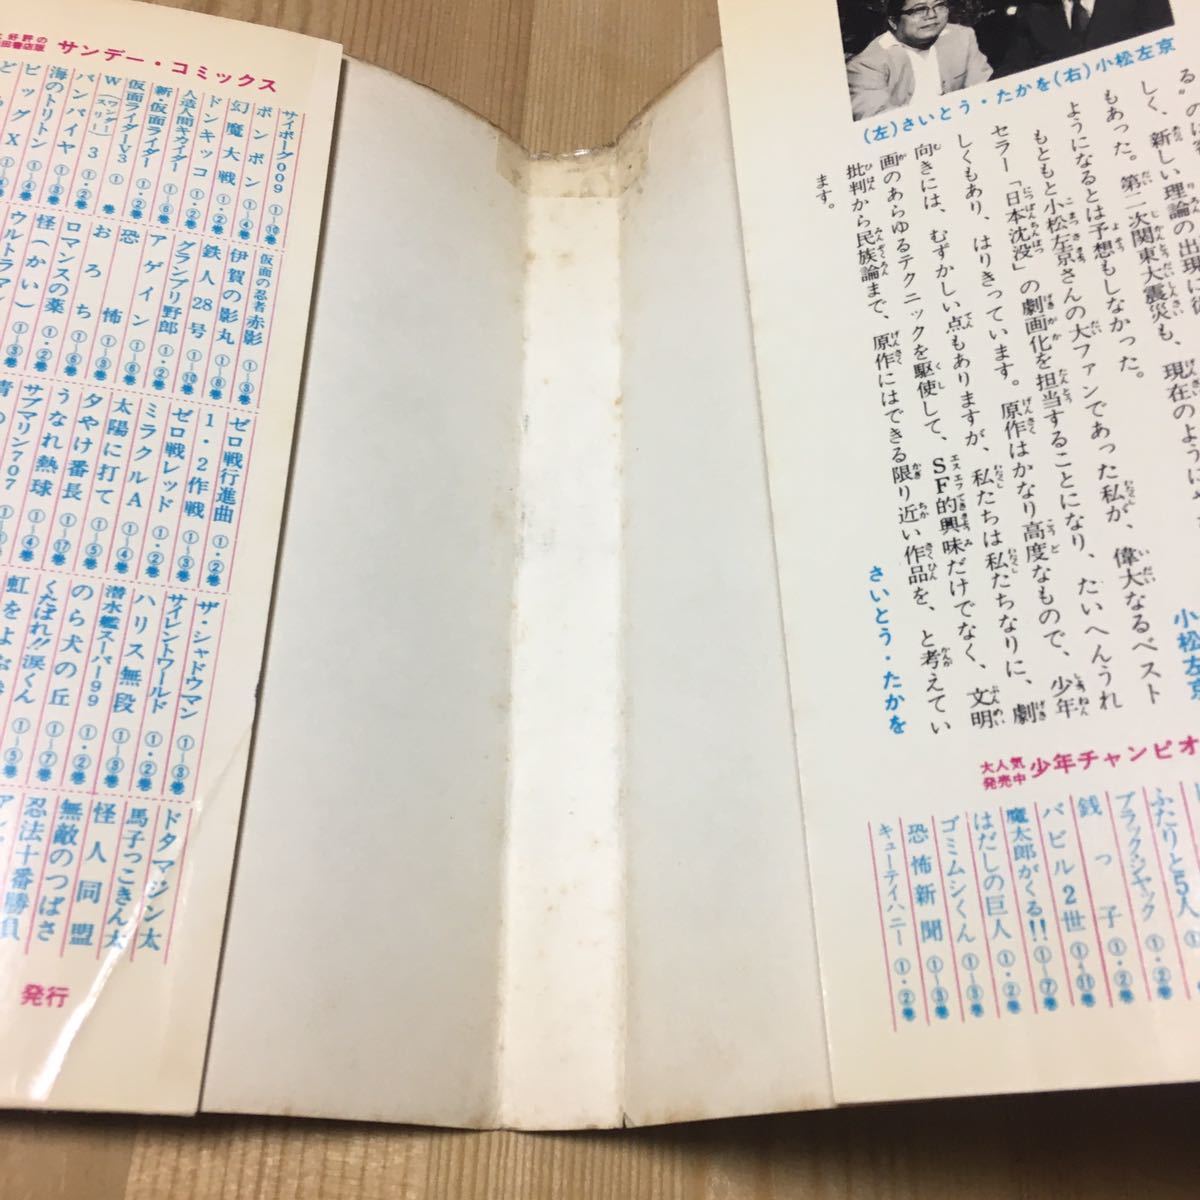 (左)さいとう・たかを(右)小松左京
しく、新しい理論の出現に
もあった。第二次関東大震災も、現在のように
ようになるとは予想もしなかった。
小松左京
もともと小松左京さんの大ファンであった私が、偉大なるベスト
セラー「日本沈没」の劇画化を担当することになり、たいへんうれ
しくもあり、はりきっています。原作はかなり高度なもので、少年
向きには、むずかしい点もありますが、私たちは私たちなりに、劇
画のあらゆるテクニックを駆使して、SF的興味だけでなく、文明
批判から民族論まで、原作にはできる限り近い作品を、と考えてい
ます。
さいとう・たかを
大人気発売中 少年チャンピオ
ふたりと5人
ブラック・ジャック ①・②巻
銭っ子 ①・②巻
バビル2世 ①~⑪巻
魔太郎がくる!! ①~⑦巻
はだしの巨人 ①・②巻
ゴミムシくん ①~③巻
恐怖新聞 ①~③巻
キューティハニー ①・②巻
サンデー・コミックス
サイボーグ009 ①~⑩巻
ボンボン ①~④巻
幻魔大戦 ①・②巻
ドンキッコ ①・②巻
人造人間キカイダー ①~⑥巻
新・仮面ライダー ①・②巻
仮面ライダーV3 ①巻
W(ワンダースリー)3 ①・②巻
バンパイヤ ①~③巻
海のトリトン ①~④巻
ビッグX
仮面の忍者赤影 ①~③巻
伊賀の影丸
鉄人28号 ①~⑩巻
グランプリ野郎 ①・②巻
アゲイン ①~⑥巻
恐怖 ①~⑨巻
おろち ①~⑥巻
ロマンスの薬 ①・②巻
怪(かい) ①~③巻
ウルトラマン
ゼロ戦行進曲 ①・②巻
1・2作戦 ①~③巻
ゼロ戦レッド ①・②巻
ミラクルA ①~④巻
太陽に打て ①~⑤巻
夕やけ番長 ①~⑰巻
うなれ熱球 ①~④巻
サブマリン707
ザ・シャドウマン ①~③巻
サイレントワールド ①・②巻
ハリス無段 ①~⑨巻
潜水艦スーパー99 ①・②巻
のら犬の丘 ①~⑦巻
くたばれ!!涙くん ①~⑤巻
虹をよぶ
ドタマジン太
馬子っこきん太
怪人同盟
無敵のつばさ
忍法十番勝負
発行